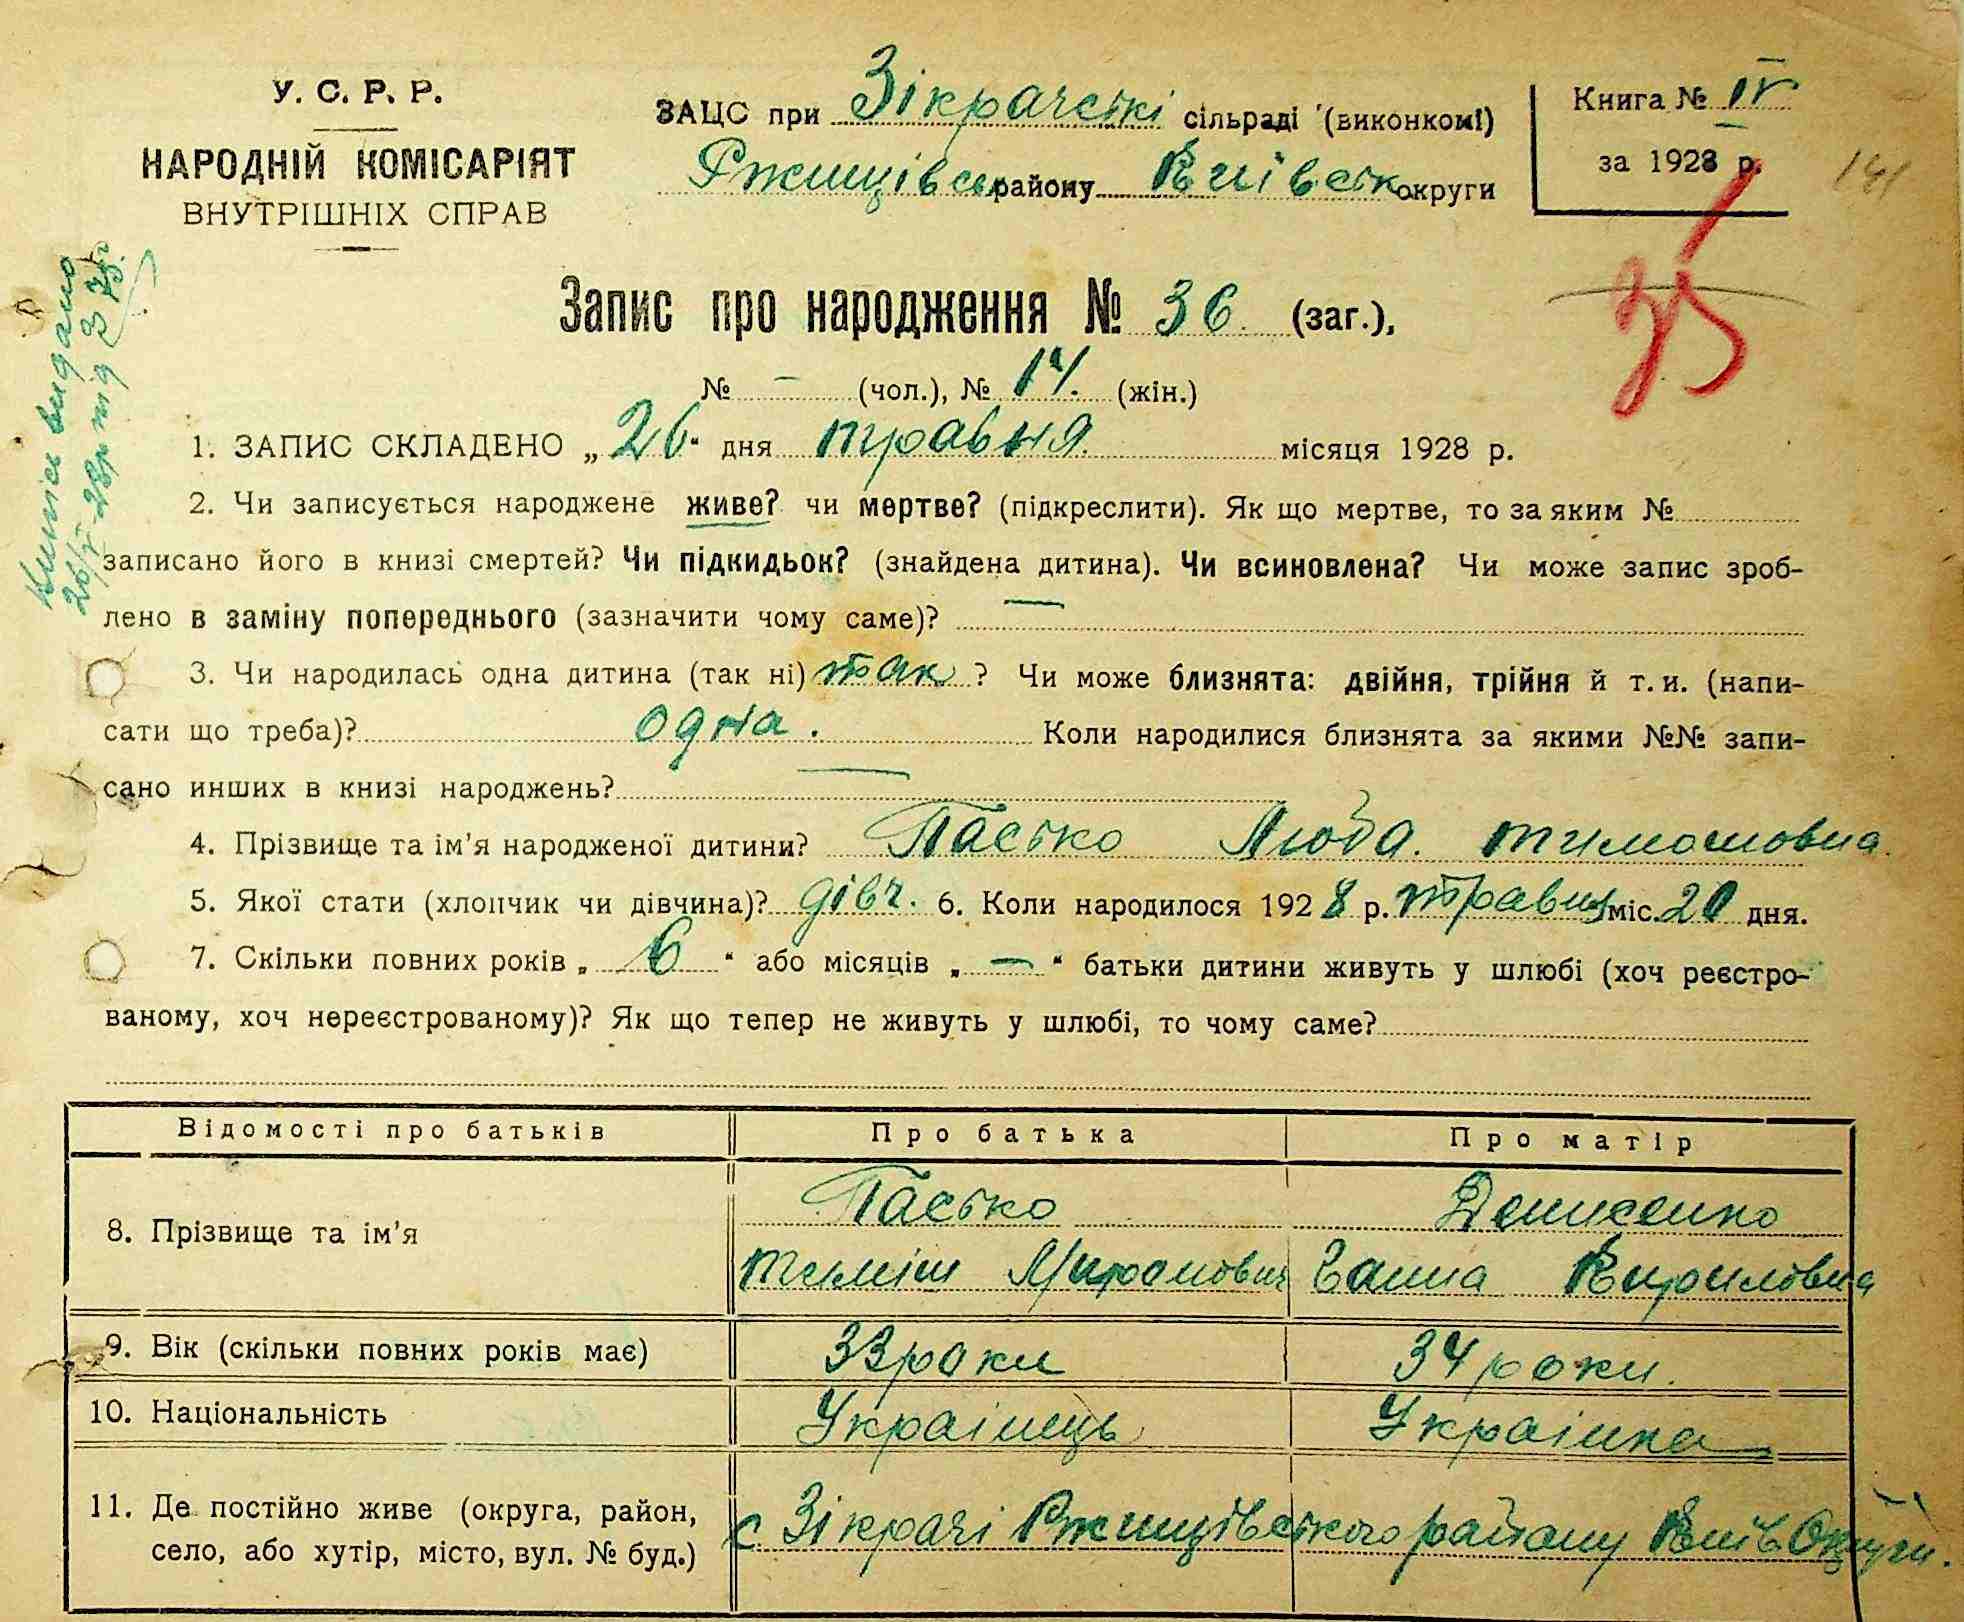 У. С. Р. Р.
НАРОДНІЙ КОМІСАРІЯТ
ВНУТРІШНІХ СПРАВ
ЗАЦС при Зікрачській сільраді (виконкомі)
Ржищівськ району Київськ округи
Книга № IV
за 1928 р.
141
35
Випись видано
26/V-28р під 275.
Запис про народження № 36 (заг.),
№ — (чол.), № 14. (жін.)
1. ЗАПИС СКЛАДЕНО „26“ дня травня місяця 1928 р.
2. Чи записується народжене живе? чи мертве? (підкреслити). Як що мертве, то за яким №
записано його в книзі смертей? Чи підкидьок? (знайдена дитина). Чи всиновлена? Чи може запис зроб-
лено в заміну попереднього (зазначити чому саме)? —
3. Чи народилась одна дитина (так ні) так ? Чи може близнята: двійня, трійня й т. и. (напи-
сати що треба)? одна. Коли народилися близнята за якими №№ запи-
сано инших в книзі народжень? —
4. Прізвище та ім’я народженої дитини? Пасько Люба. Тимошовна.
5. Якої стати (хлопчик чи дівчина)? дівч. 6. Коли народилося 1928 р. травня міс. 20 дня.
7. Скільки повних років „ 6 “ або місяців „ — “ батьки дитини живуть у шлюбі (хоч реєстро-
ваному, хоч нереєстрованому)? Як що тепер не живуть у шлюбі, то чому саме?
Відомості про батьків Про батька Про матір
8. Прізвище та ім’я
Пасько Денисенко
Тиміш Миронович Ганна Кириловна
9. Вік (скільки повних років має) 33 роки 34 роки.
10. Національність Українець Українка
11. Де постійно живе (округа, район,
село, або хутір, місто, вул. № буд.)
с. Зікрачі Ржищівського району Київ. Округи.